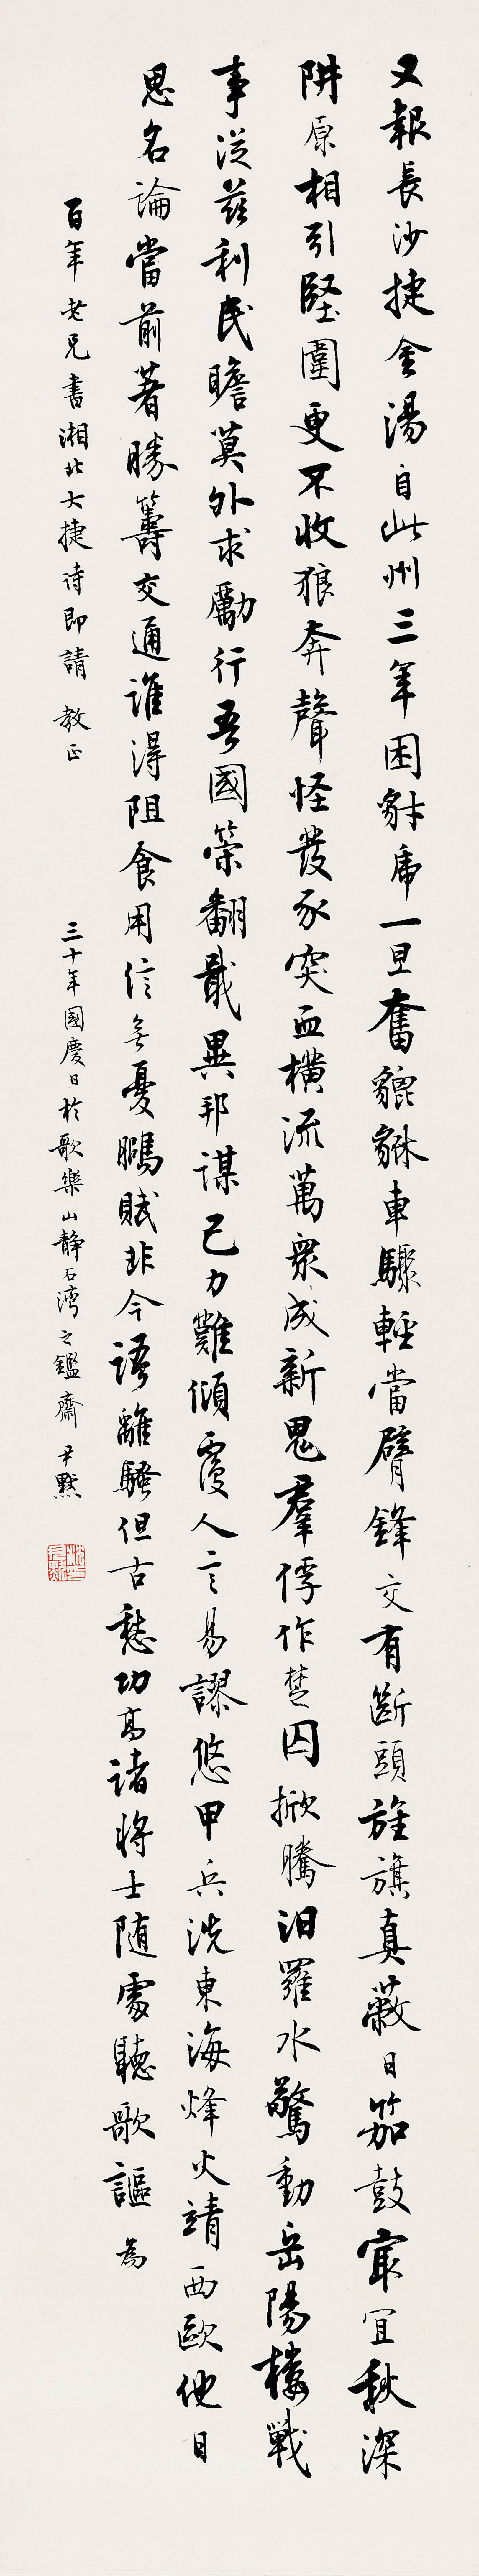 又報長沙捷金湯自此州三年困豺虎一旦奮貔貅車驟輕當臂鋒交有斷頭旌旗真蔽日笳鼓宜秋深
阱原相引堅圍更不收狼奔聲怪發豕突血橫流萬衆成新鬼羣俘作楚囚掀騰汨羅水驚動岳陽樓戰
事從茲利民瞻莫外求勵行吾國策翻戢異邦謀己力難傾覆人言易謬悠甲兵洗東海烽火靖西歐他日
思名論當前著勝籌交通誰得阻食用信無憂鵩賦非今語離騷但古愁功高諸將士随處聽歌謳為
百年老兄書湘北大捷詩即請教正
三十年國慶日於歌樂山靜石灣之鑑齋尹默